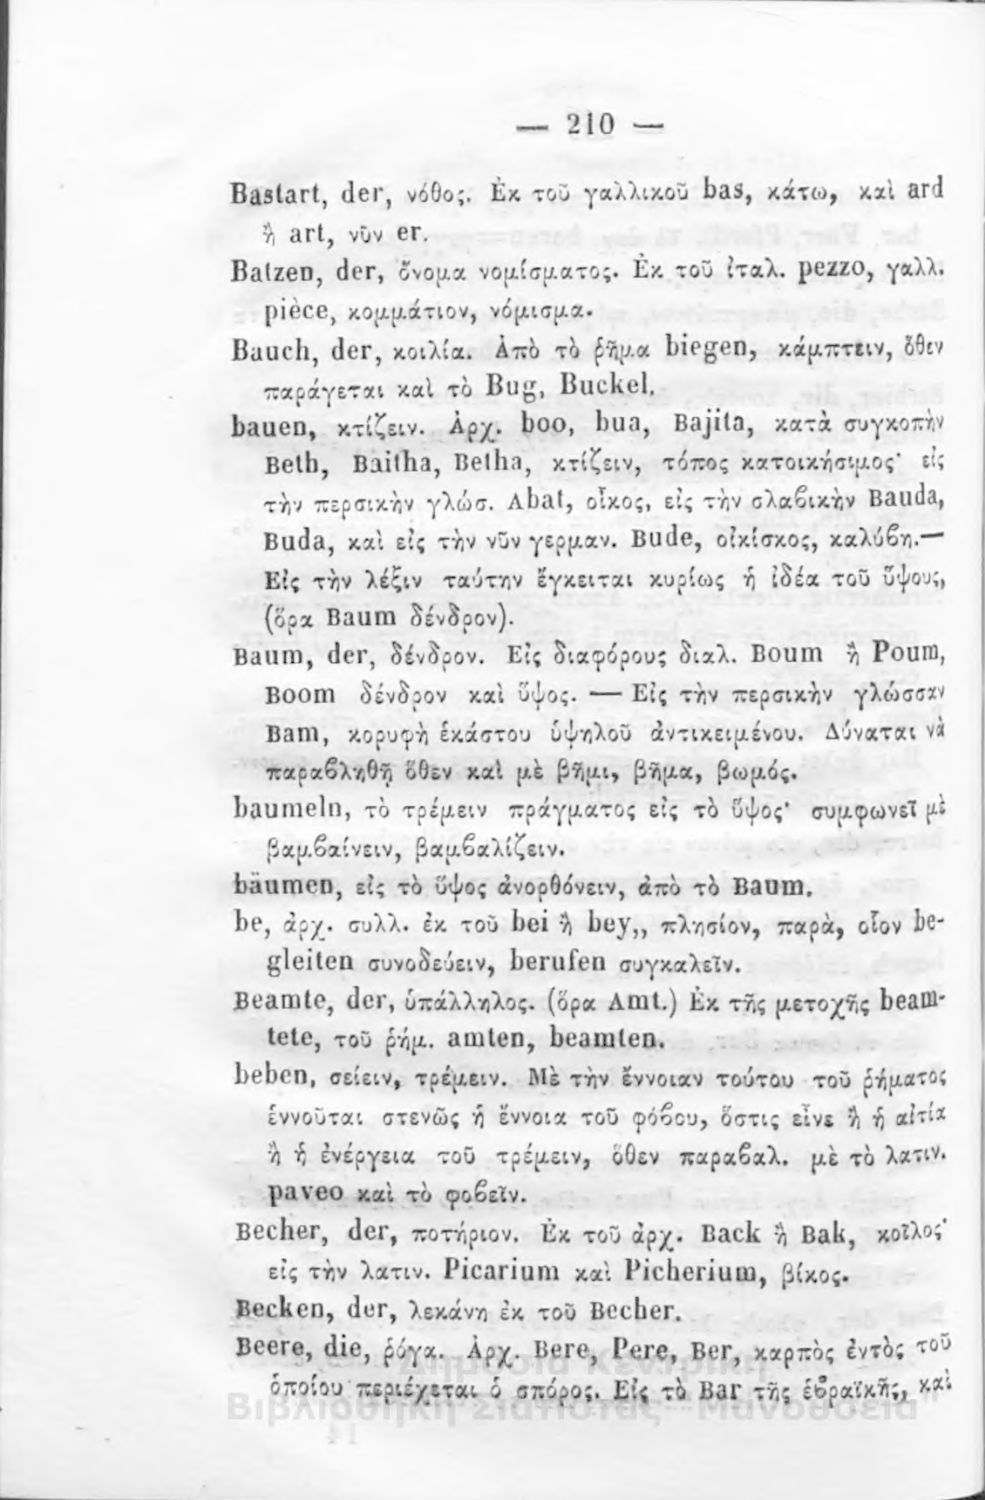 — 210 —
Bastart, der, νόθος. Ἐκ τοῦ γαλλικοῦ bas, κάτω, καὶ ard
ἢ art, νῦν er.
Batzen, der, ὄνομα νομίσματος. Ἐκ τοῦ ἰταλ. pezzo, γαλλ.
pièce, κομμάτιον, νόμισμα.
Bauch, der, κοιλία. Ἀπὸ τὸ ῥῆμα biegen, κάμπτειν, ὅθεν
παράγεται καὶ τὸ Bug, Buckel.
bauen, κτίζειν. Ἀρχ. boo, bua, Bajita, κατὰ συγκοπὴν
Beth, Baitha, Betha, κτίζειν, τόπος κατοικήσιμος· εἰς
τὴν περσικὴν γλώσ. Abat, οἶκος, εἰς τὴν σλαβικὴν Bauda,
Buda, καὶ εἰς τὴν νῦν γερμαν. Bude, οἰκίσκος, καλύβη.—
Εἰς τὴν λέξιν ταύτην ἔγκειται κυρίως ἡ ἰδέα τοῦ ὕψους,
(ὅρα Baum δένδρον).
Baum, der, δένδρον. Εἰς διαφόρους διαλ. Boum ἢ Poum,
Boom δένδρον καὶ ὕψος. — Εἰς τὴν περσικὴν γλῶσσαν
Bam, κορυφὴ ἑκάστου ὑψηλοῦ ἀντικειμένου. Δύναται νὰ
παραβληθῇ ὅθεν καὶ μὲ βῆμι, βῆμα, βωμός.
baumeln, τὸ τρέμειν πράγματος εἰς τὸ ὕψος· συμφωνεῖ μὲ
βαμβαίνειν, βαμβαλίζειν.
bäumen, εἰς τὸ ὕψος ἀνορθόνειν, ἀπὸ τὸ Baum.
be, ἀρχ. συλλ. ἐκ τοῦ bei ἢ bey,, πλησίον, παρὰ, οἷον be-
gleiten συνοδεύειν, berufen συγκαλεῖν.
Beamte, der, ὑπάλληλος. (ὅρα Amt.) Ἐκ τῆς μετοχῆς beam-
tete, τοῦ ῥήμ. amten, beamten.
beben, σείειν, τρέμειν. Μὲ τὴν ἔννοιαν τούτου τοῦ ῥήματος
ἑννοῦται στενῶς ἡ ἔννοια τοῦ φόβου, ὅστις εἶνε ἢ ἡ αἰτία
ἢ ἡ ἐνέργεια τοῦ τρέμειν, ὅθεν παραβαλ. μὲ τὸ λατιν.
paveo καὶ τὸ φοβεῖν.
Becher, der, ποτήριον. Ἐκ τοῦ ἀρχ. Back ἢ Bak, κοῖλος·
εἰς τὴν λατιν. Picarium καὶ Picherium, βίκος.
Becken, der, λεκάνη ἐκ τοῦ Becher.
Beere, die, ῥόγα. Ἀρχ. Bere, Pere, Ber, καρπὸς ἐντὸς τοῦ
ὁποίου περιέχεται ὁ σπόρος. Εἰς τὸ Bar τῆς ἑβραϊκῆς, καὶ
Δημόσια Κεντρική
Βιβλιοθήκη Σιάτιστας "Μανούσεια"